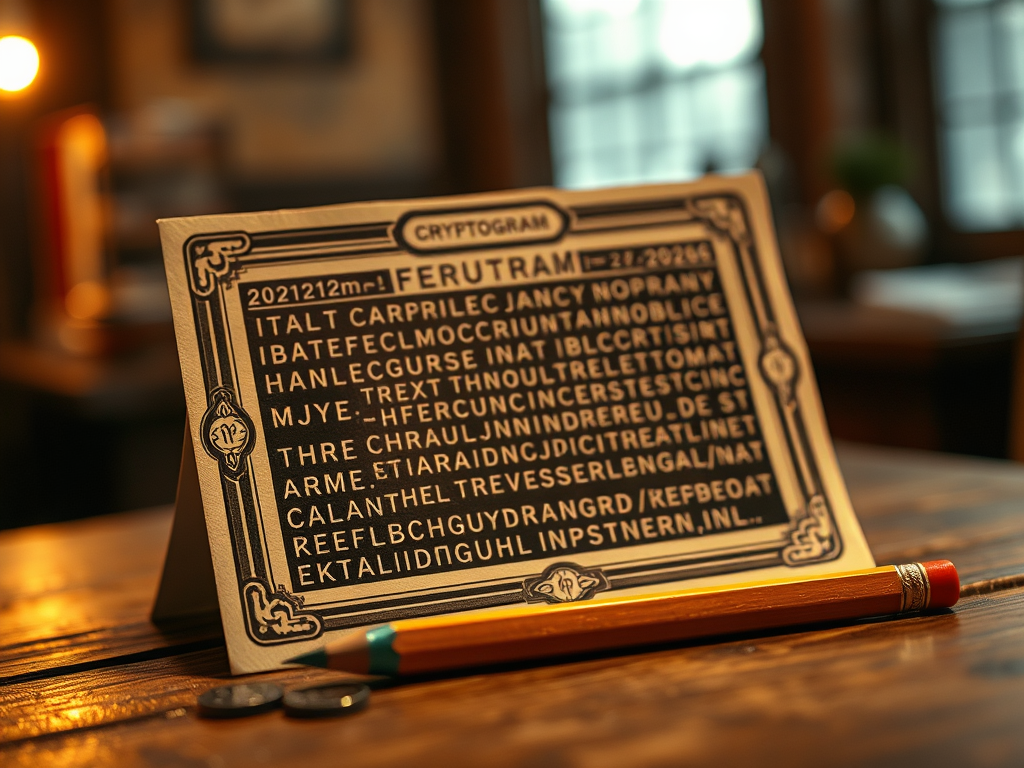 CRYPTOGRAM
2021212m-! FERUTRAM
ITALT CARPRILEC JANCY NOPRANY
IBATEFECLMOCCRIUNTAHNOBLICE
HANLECGURSE INAT IBLCCRTISINT
MJYE. TREXT THNOULTRELETTOMAT
-HFERCUNCINCERSTESTCINC
THRE CHRAULJNNINDREREU_DE ST
ARME.ETIARAIDNCJDICITREATLINET
CALANTHEL TREVESSERLENGAL/NAT
REEFLBCHGUYDRANGRD/KEFBEOAT
INPSTNERN,INL..